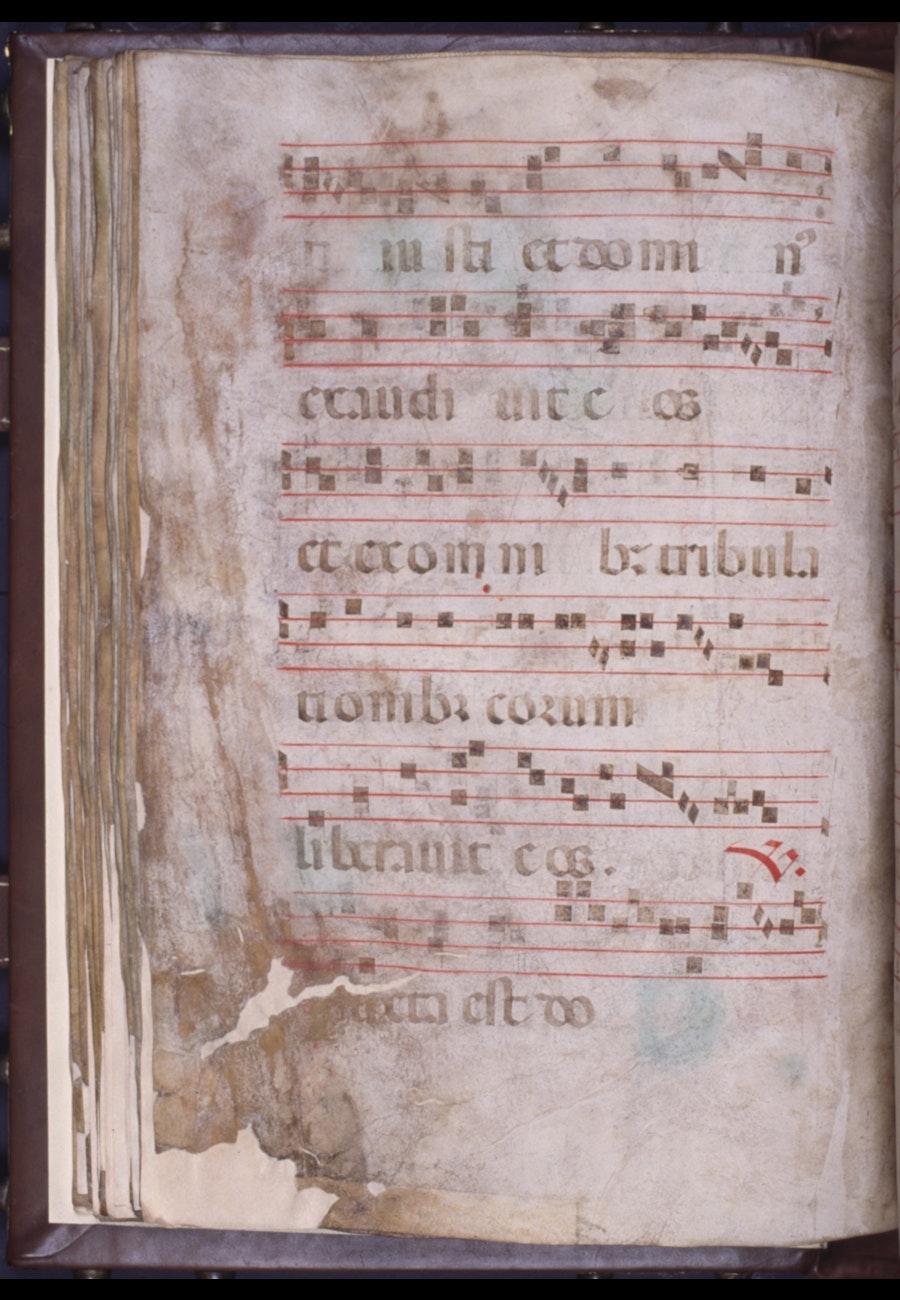 iusti et domi n9
exaudi uit e os
et ex om ni bz tribula
tionibz eorum
liberauit e os. V.
iuxta est do